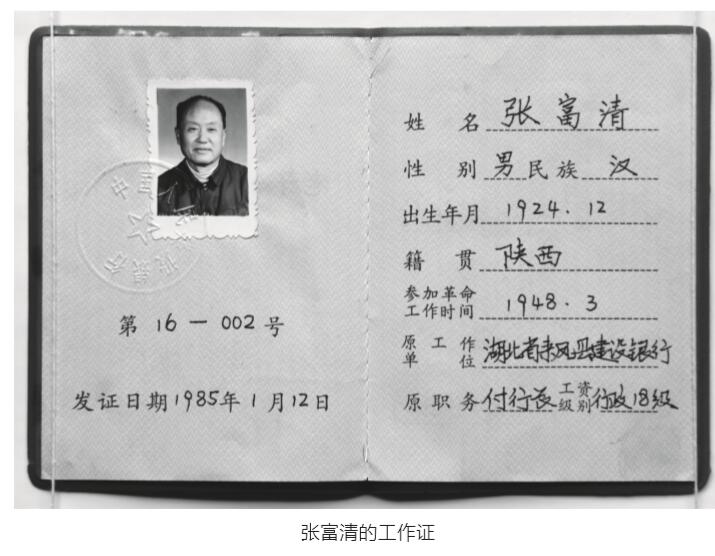 第 16 — 002 号
发证日期1985年1月12日
姓 名 张富清
性 别 男 民族 汉
出生年月 1924.12
籍 贯 陕西
参加革命工作时间 1948.3
原工作单位 湖北省来凤县建设银行
原职务 付行长 工资级别 行政18级
张富清的工作证